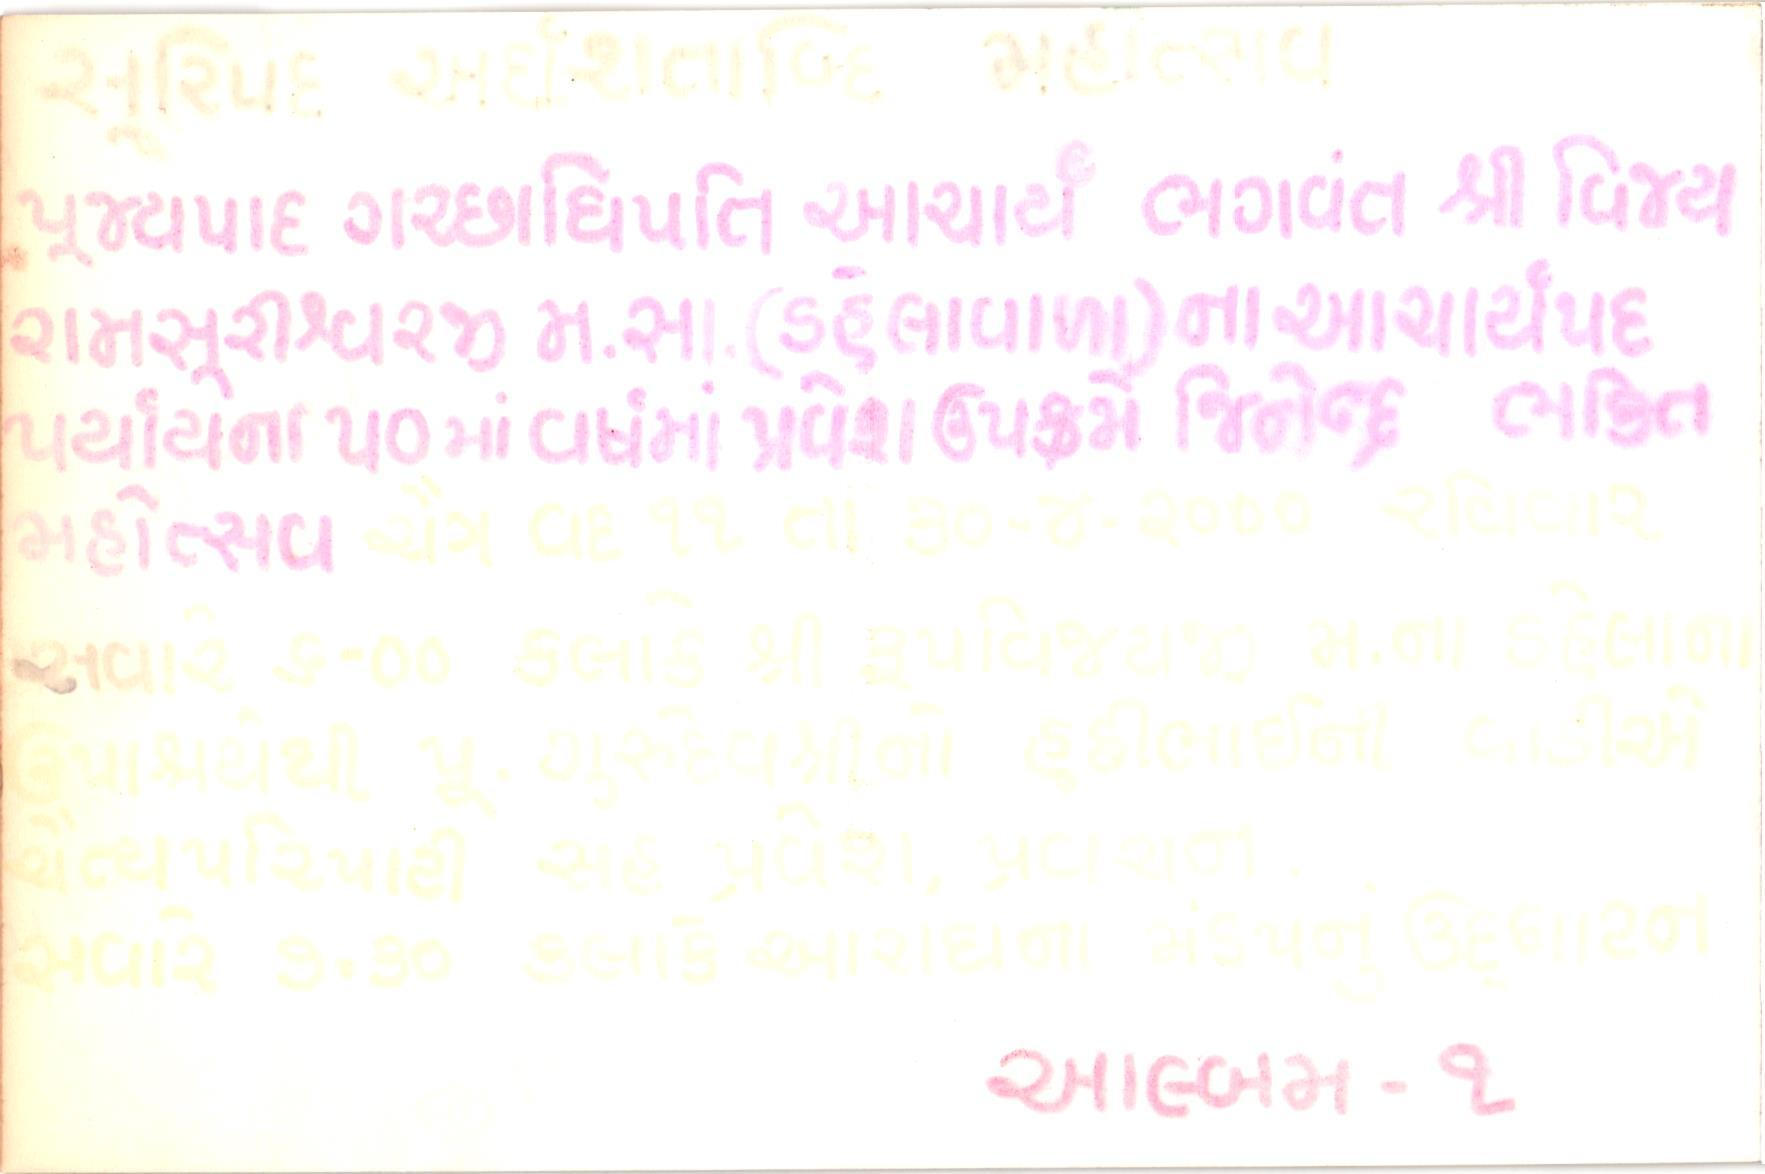 સૂરિપદ અર્ધશતાબ્દિ મહોત્સવ
પૂજ્યપાદ ગચ્છાધિપતિ આચાર્ય ભગવંત શ્રી વિજય
રામસૂરીશ્વરજી મ.સા.(ડહેલાવાળા)ના આચાર્યપદ
પર્યાયના ૫૦માં વર્ષમાં પ્રવેશ ઉપક્રમે જિનેન્દ્ર ભક્તિ
મહોત્સવ ચૈત્ર વદ ૧૧ તા ૩૦-૪-૨૦૦૦ રવિવાર
સવારે ૬-૦૦ કલાકે શ્રી રૂપવિજયજી મ.ના ડહેલાના
ઉપાશ્રયેથી પૂ. ગુરુદેવશ્રીનો હઠીભાઈની વાડીએ
ચૈત્યપરિપાટી સહ પ્રવેશ, પ્રવચન.
સવારે ૭.૩૦ કલાકે આરાધના મંડપનું ઉદ્ઘાટન
આલ્બમ - ૧